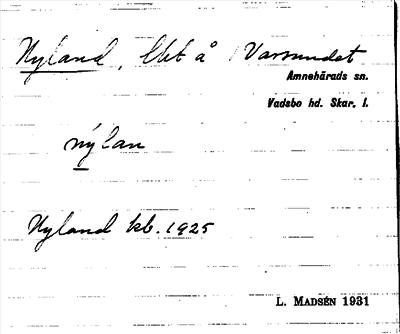 Nyland, lht å Varsundet
Amnehärads sn.
Vadsbo hd. Skar. l.
nýlan
Nyland kb. 1925
L. MADSÉN 1931